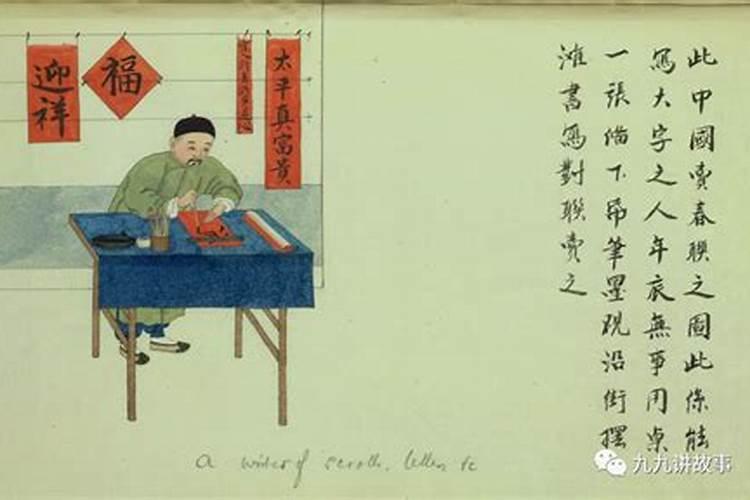 此中國賣春聯之圖此係能
寫大字之人年底無事用桌
一張備下帋筆墨硯沿街擺
灘書寫對聯賣之
太平真富貴
福
迎祥
a writer of scrolls, letters &c
九九讲故事